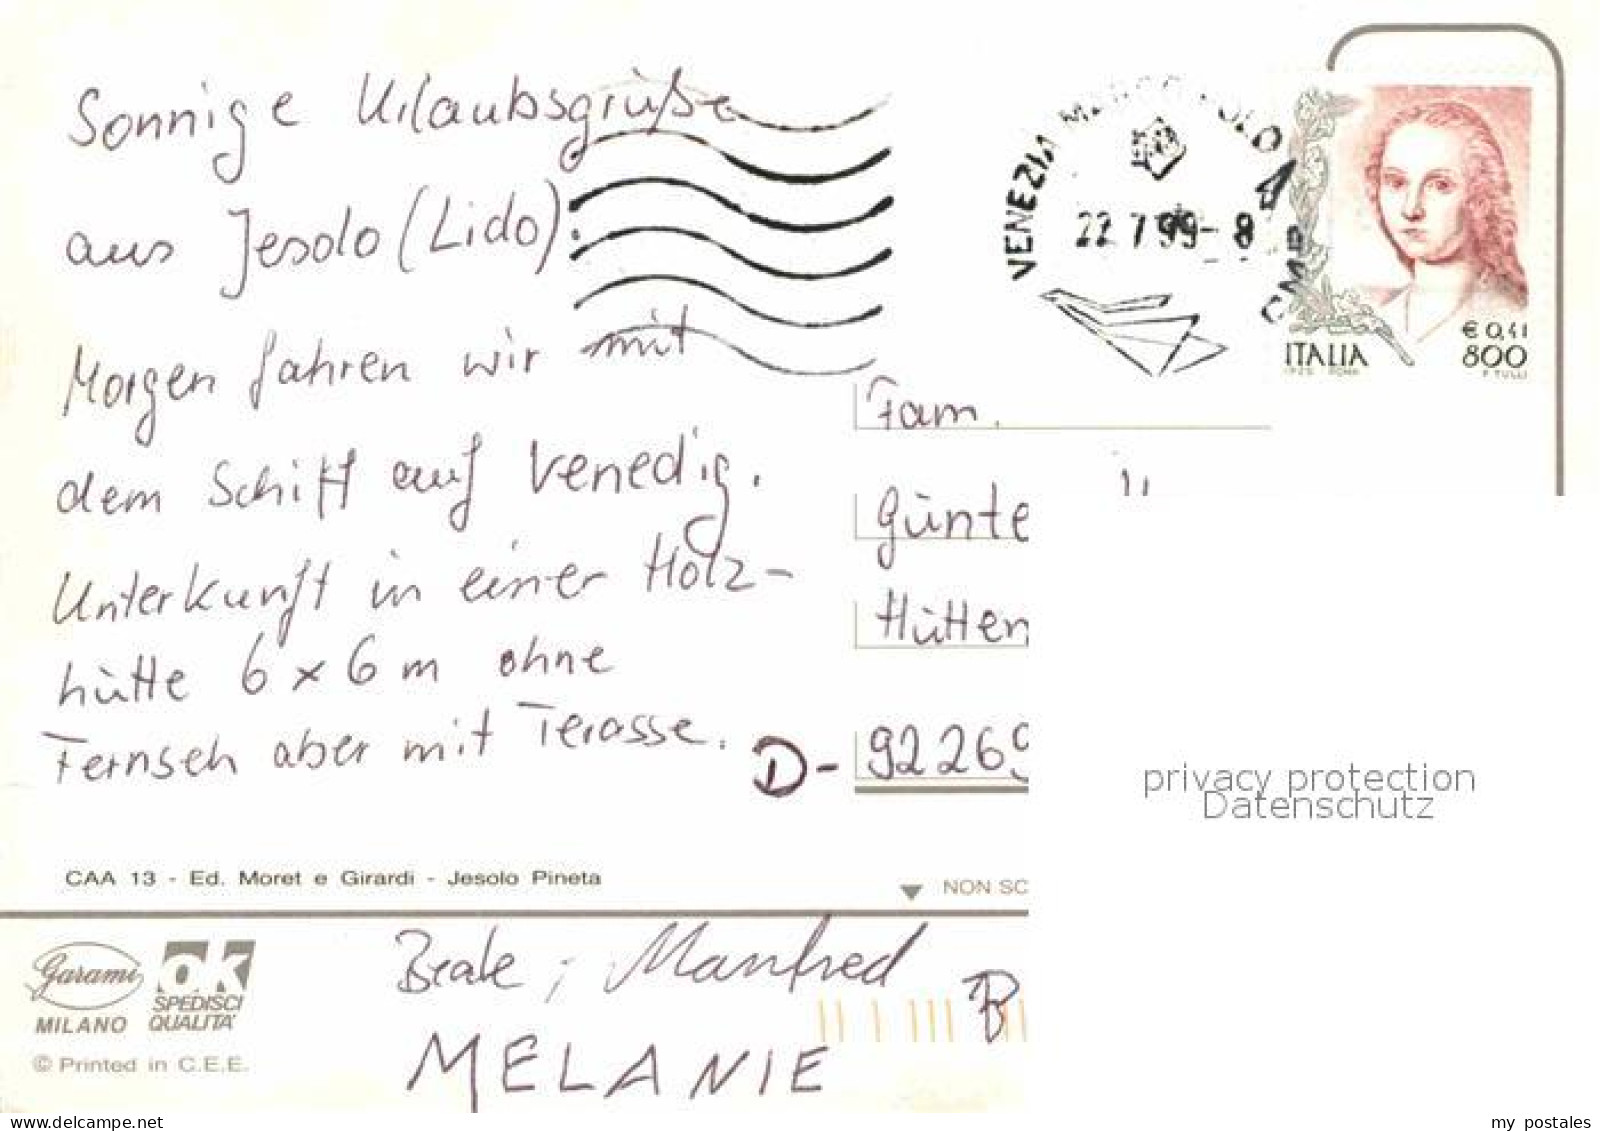 Sonnige Urlaubsgrüße
aus Jesolo (Lido).
Morgen fahren wir mit
dem Schiff auf Venedig.
Unterkunft in einer Holz-
hütte 6 x 6 m ohne
Fernseh aber mit Terasse.
VENEZIA
22 7 99 - 8
CMP
€ 0,41
ITALIA 800
ROMA F. TULLI
Fam.
Günte
Hütten
D- 92269
privacy protection
Datenschutz
CAA 13 - Ed. Moret e Girardi - Jesolo Pineta
NON SC
Beate, Manfred
MELANIE
B
Garami
MILANO
OK
SPEDISCI
QUALITA'
© Printed in C.E.E.
hu.delcampe.net
my_postales